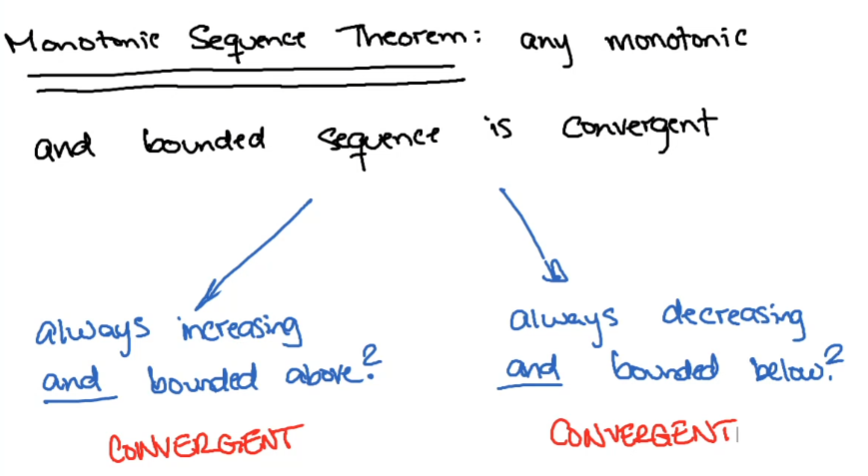 Monotonic Sequence Theorem: any monotonic
and bounded sequence is convergent
always increasing
and bounded above?
CONVERGENT
always decreasing
and bounded below?
CONVERGENT